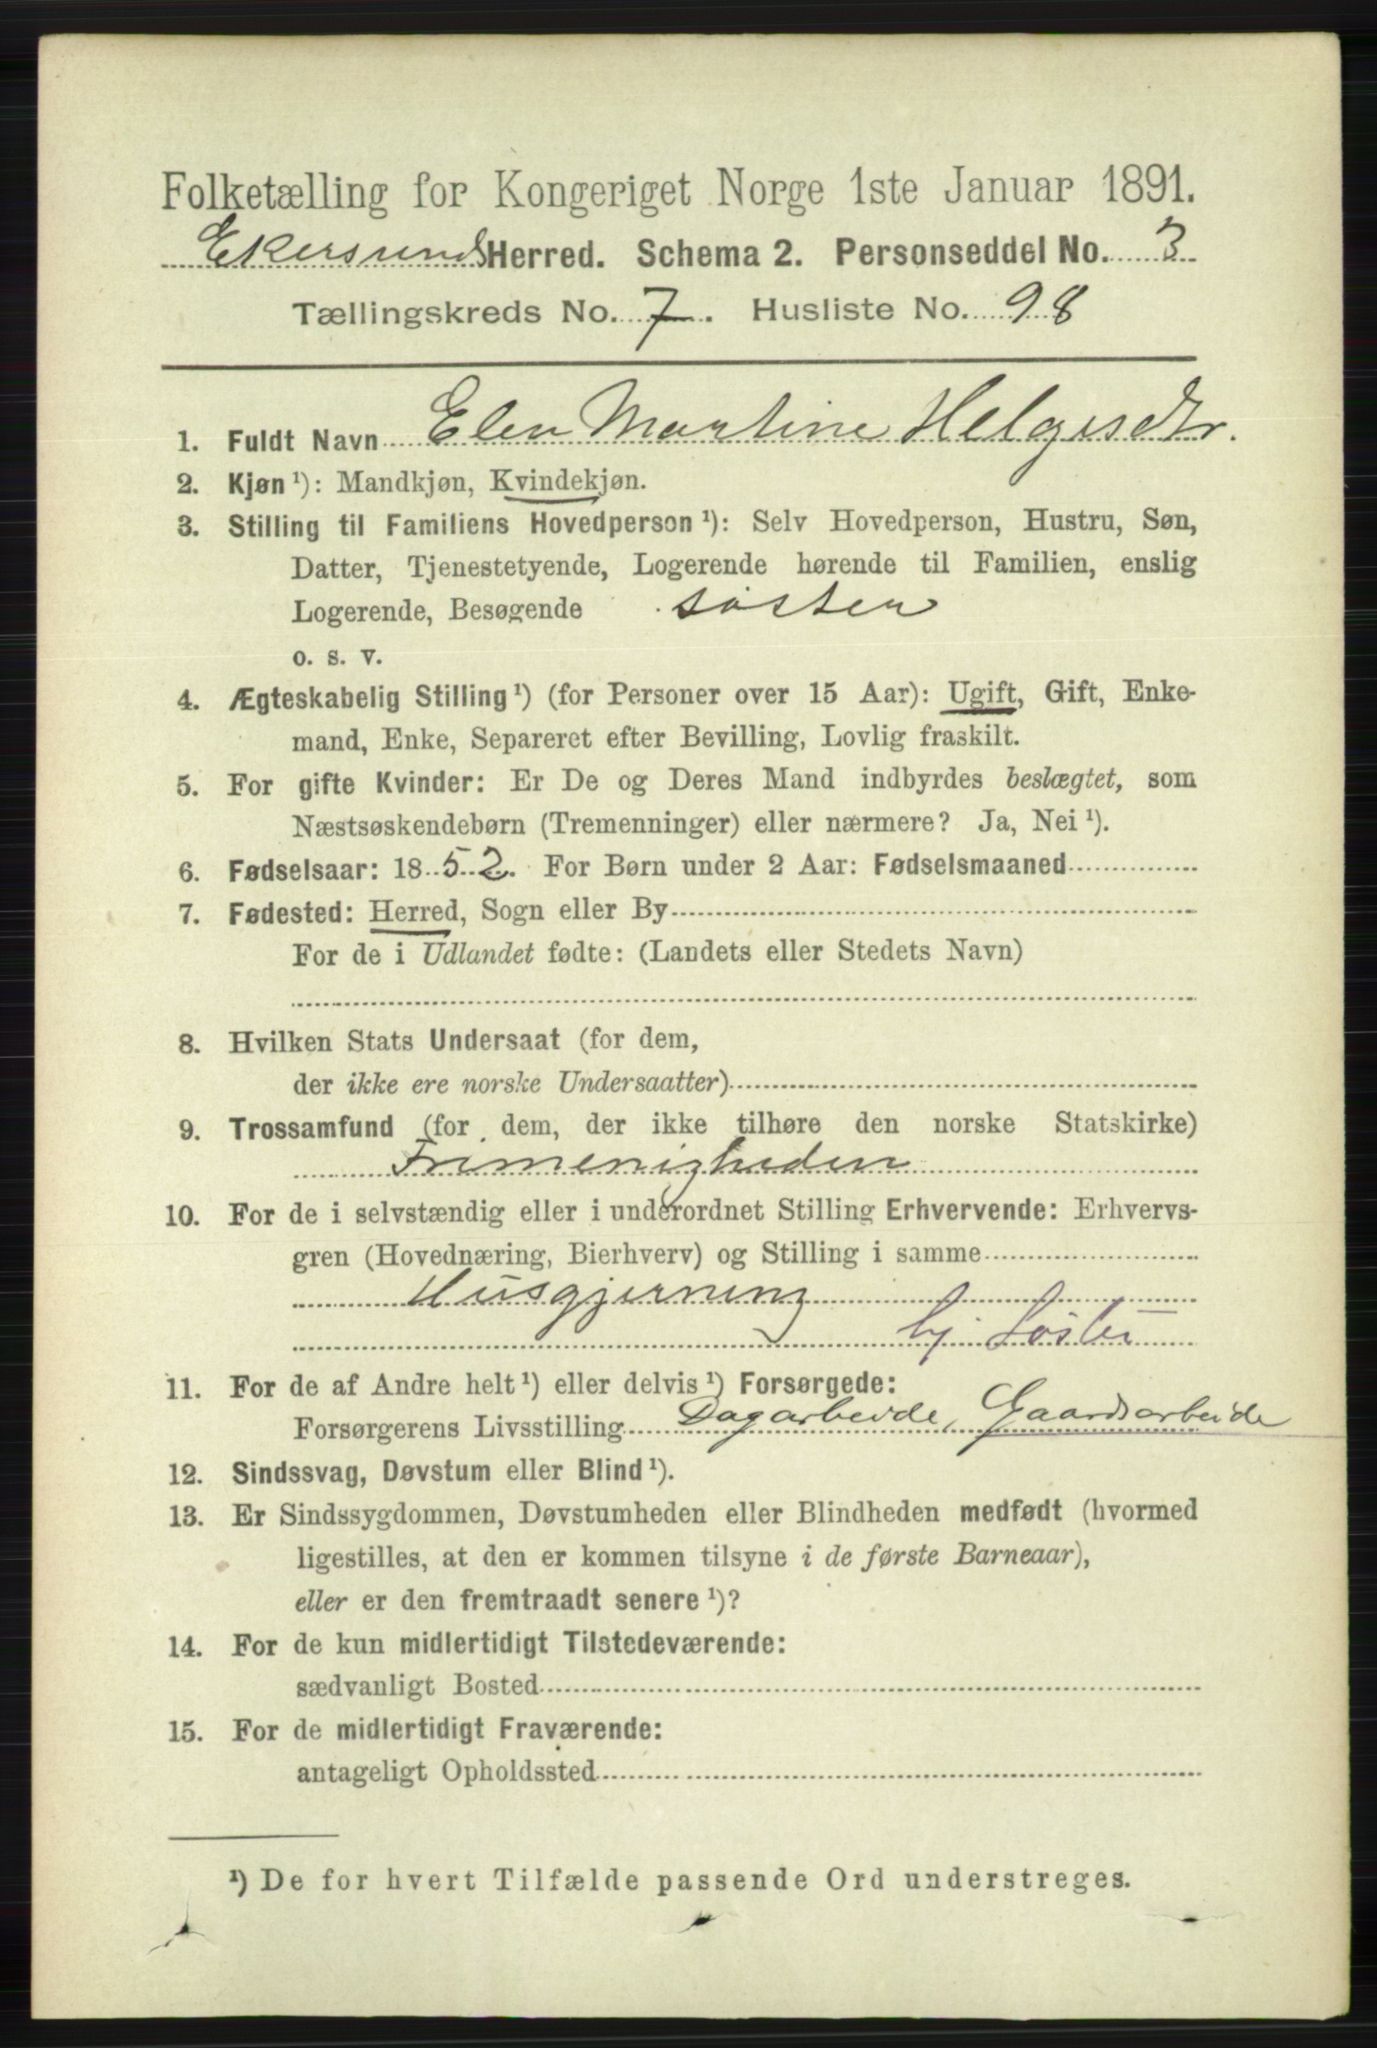 Folketælling for Kongeriget Norge 1ste Januar 1891.
Ekersunds Herred. Schema 2. Personseddel No. 3
Tællingskreds No. 7. Husliste No. 98
1. Fuldt Navn Elen Martine Helgesdtr.
2. Kjøn ¹): Mandkjøn, Kvindekjøn.
3. Stilling til Familiens Hovedperson ¹): Selv Hovedperson, Hustru, Søn,
Datter, Tjenestetyende, Logerende hørende til Familien, enslig
Logerende, Besøgende søster
o. s. v.
4. Ægteskabelig Stilling ¹) (for Personer over 15 Aar): Ugift, Gift, Enke-
mand, Enke, Separeret efter Bevilling, Lovlig fraskilt.
5. For gifte Kvinder: Er De og Deres Mand indbyrdes beslægtet, som
Næstsøskendebørn (Tremenninger) eller nærmere? Ja, Nei ¹).
6. Fødselsaar: 1852. For Børn under 2 Aar: Fødselsmaaned
7. Fødested: Herred, Sogn eller By
For de i Udlandet fødte: (Landets eller Stedets Navn)
8. Hvilken Stats Undersaat (for dem,
der ikke ere norske Undersaatter)
9. Trossamfund (for dem, der ikke tilhøre den norske Statskirke)
Frimenigheden
10. For de i selvstændig eller i underordnet Stilling Erhvervende: Erhvervs-
gren (Hovednæring, Bierhverv) og Stilling i samme
Husgjerning
hj. Søster
11. For de af Andre helt ¹) eller delvis ¹) Forsørgede:
Forsørgerens Livsstilling Dagarbeide, Gaardsarbeide
12. Sindssvag, Døvstum eller Blind ¹).
13. Er Sindssygdommen, Døvstumheden eller Blindheden medfødt (hvormed
ligestilles, at den er kommen tilsyne i de første Barneaar),
eller er den fremtraadt senere ¹)?
14. For de kun midlertidigt Tilstedeværende:
sædvanligt Bosted
15. For de midlertidigt Fraværende:
antageligt Opholdssted
¹) De for hvert Tilfælde passende Ord understreges.